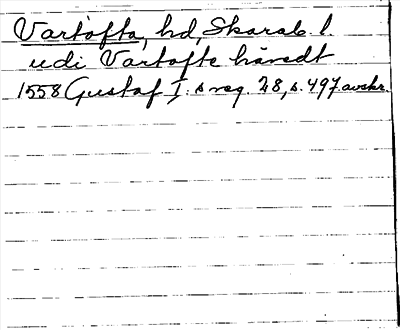 Vartofta, hd Skarab. l.
udi Vartofte häredt
1558 Gustaf I:s reg. 28, s. 497 avskr.